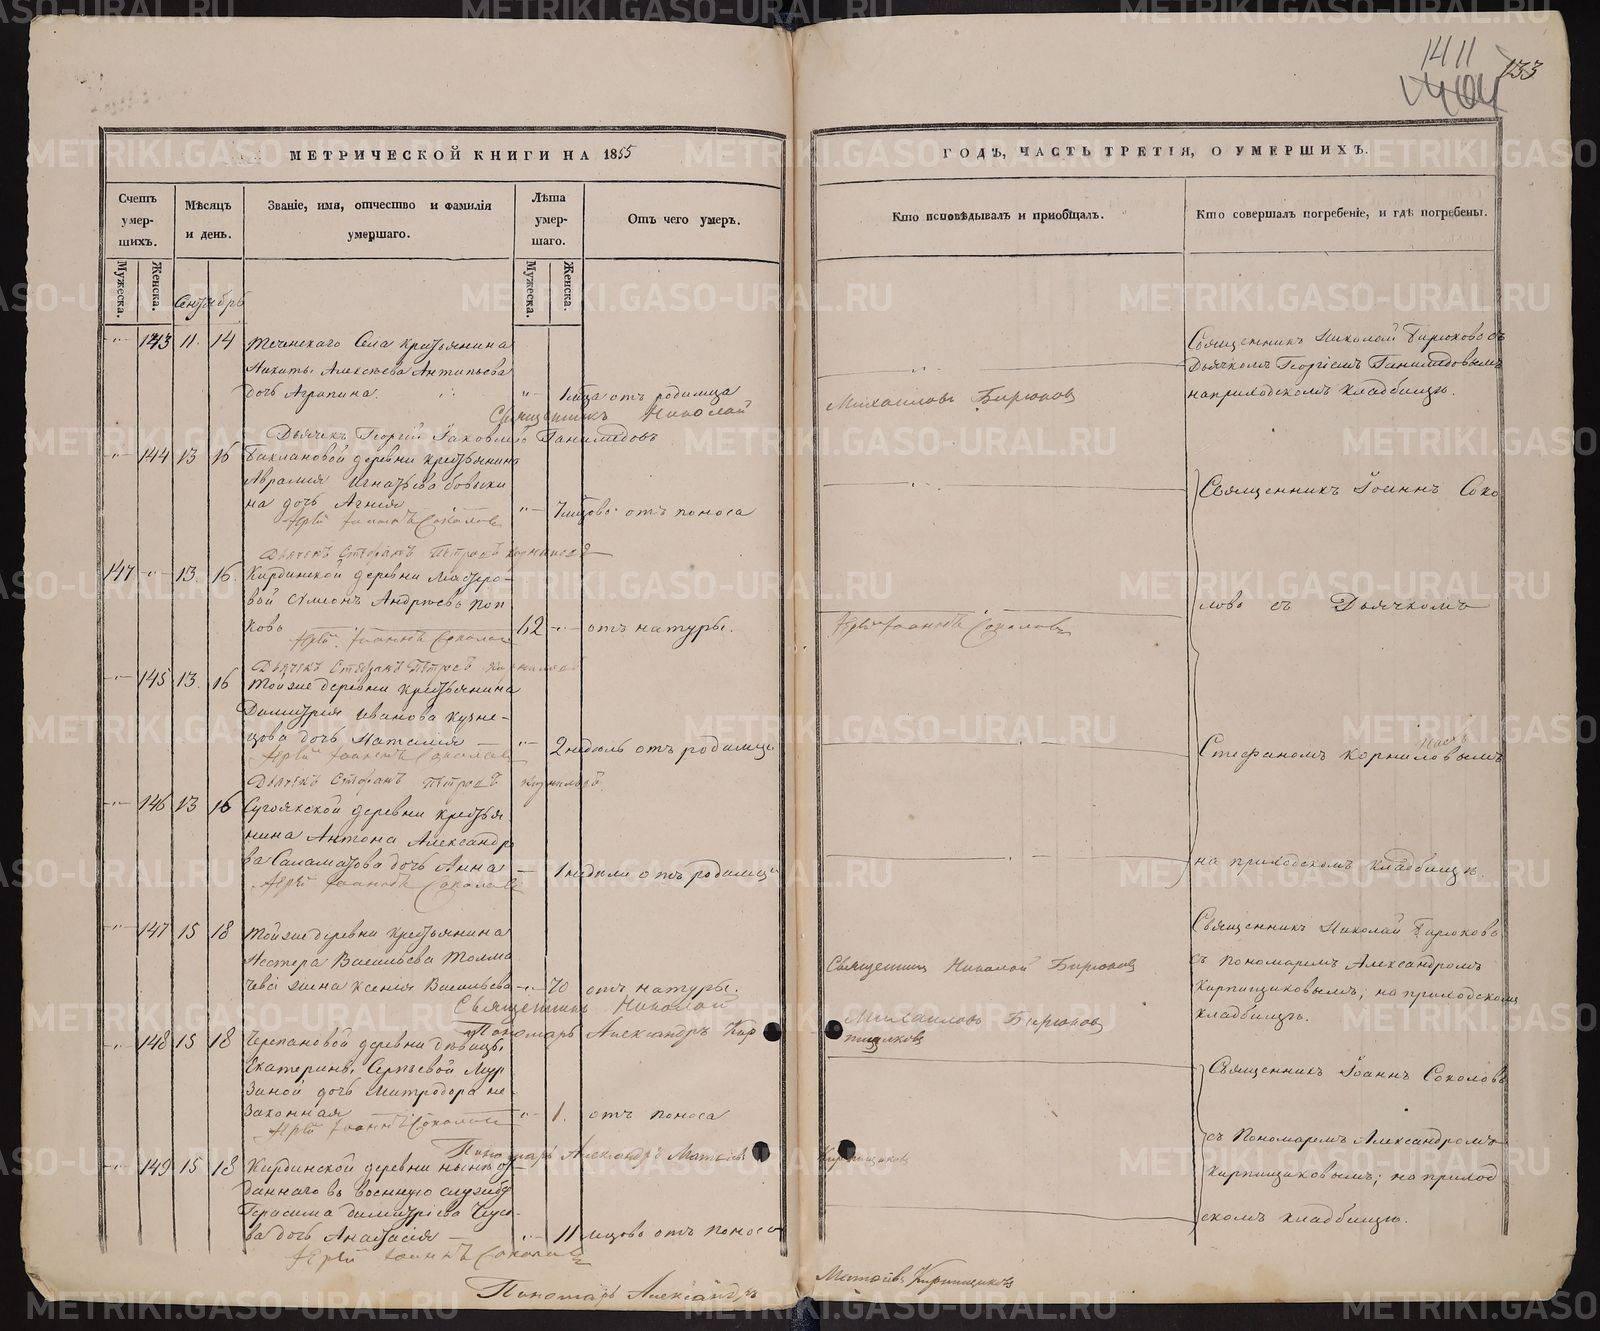 1411
1404
133
МЕТРИЧЕСКОЙ КНИГИ НА 1855
ГОДЪ, ЧАСТЬ ТРЕТІЯ, О УМЕРШИХЪ.
Счетъ умер-шихъ.
Мѣсяцъ и день.
Званіе, имя, отчество и фамилія умершаго.
Лѣта умер-шаго.
Отъ чего умеръ.
Кто исповѣдывалъ и пріобщалъ.
Кто совершалъ погребеніе, и гдѣ погребены.
Мужеска.
Женска.
Мужеска.
Женска.
Сентябрь
143 11. 14 Теченскаго Села крестьянина
Никиты Алексѣева Антипьева
дочь Агрипина. 1 мѣсяца отъ родимца
Священникъ Николай
Михаиловъ Бирюковъ
Дьячекъ Георгій Яковлевъ Ганимедовъ
Священникъ Николай Бирюковъ съ
Дьячкомъ Георгіемъ Ганимедовымъ
на приходскомъ кладбищѣ.
144 13 16 Баклановой деревни крестьянина
Авраамія Игнатьева
на дочь Агнія 7 мѣсяцовъ отъ поноса
Іерей Іоаннъ Соколовъ
Дьячекъ Стефанъ Петровъ Корниловъ
Священникъ Іоаннъ Соко
147 13. 16. Кирдинской деревни
вой Симеонъ Андреевъ Поп
ковъ 62 отъ натуры.
Іерей Іоаннъ Соколовъ
Іерей Іоаннъ Соколовъ
Дьячекъ Стефанъ Петровъ Корниловъ
ловъ съ Дьячкомъ
145 13. 16 Той же деревни крестьянина
Димитрія Иванова Кузне-
цова дочь Наталія 2 недѣль отъ родимца
Іерей Іоаннъ Соколовъ
Дьячекъ Стефанъ Петровъ Корниловъ
Стефаномъ Корниловымъ
146 13 16 Сугоякской деревни крестья
нина Антона Александро
ва Саламатова дочь Анна 1 недѣли отъ родимца
Іерей Іоаннъ Соколовъ
на приходскомъ кладбищѣ.
147 15 18 Той же деревни крестьянина
Нестера Васильева Толма
чева жена Ксенія Васильева 70 отъ натуры.
Священникъ Николай Бирюковъ
Священникъ Николай
Михаиловъ Бирюковъ
Пономарь Александръ Кир
пищиковъ
Священникъ Николай Бирюковъ
съ Пономаремъ Александромъ
Кирпищиковымъ; на приходскомъ
кладбищѣ.
148 15 18 Черепановой деревни дѣвицы
Екатерины Сергѣевой Мур
зиной дочь Митродора не-
законная 1. отъ поноса
Іерей Іоаннъ Соколовъ
Пономарь Александръ Матѳіевъ
Кирпищиковъ
Священникъ Іоаннъ Соколовъ
съ Пономаремъ Александромъ
Кирпищиковымъ; на приход
скомъ кладбищѣ.
149 15 18 Кирдинской деревни
даннаго въ военную службу
Герасима Димитріева
ва дочь Анастасія 11 мѣсяцовъ отъ поноса
Іерей Іоаннъ Соколовъ
Пономарь Александръ
Матѳіевъ Кирпищиковъ
METRIKI.GASO-URAL.RU